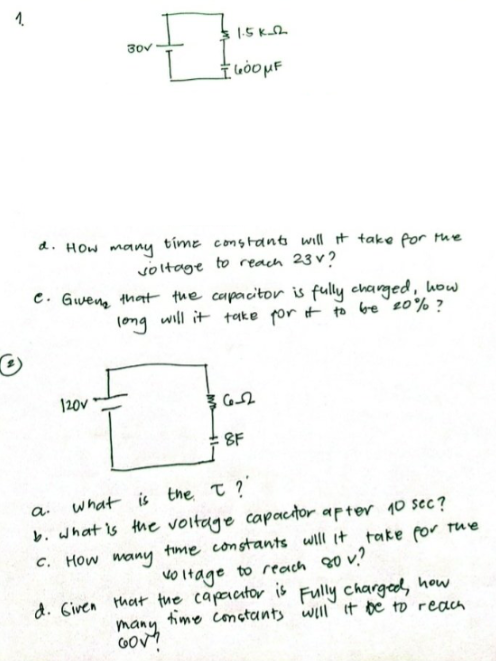 1.
30V
1.5 KΩ
600μF
d. How many time constants will it take for the
voltage to reach 23V?
e. Given that the capacitor is fully charged, how
long will it take for it to be 20%?
2
120V
6Ω
8F
a. what is the τ?
b. what is the voltage capacitor after 10 sec?
c. How many time constants will it take for the
voltage to reach 80V?
d. Given that the capacitor is Fully charged, how
many time constants will it be to reach
60V?